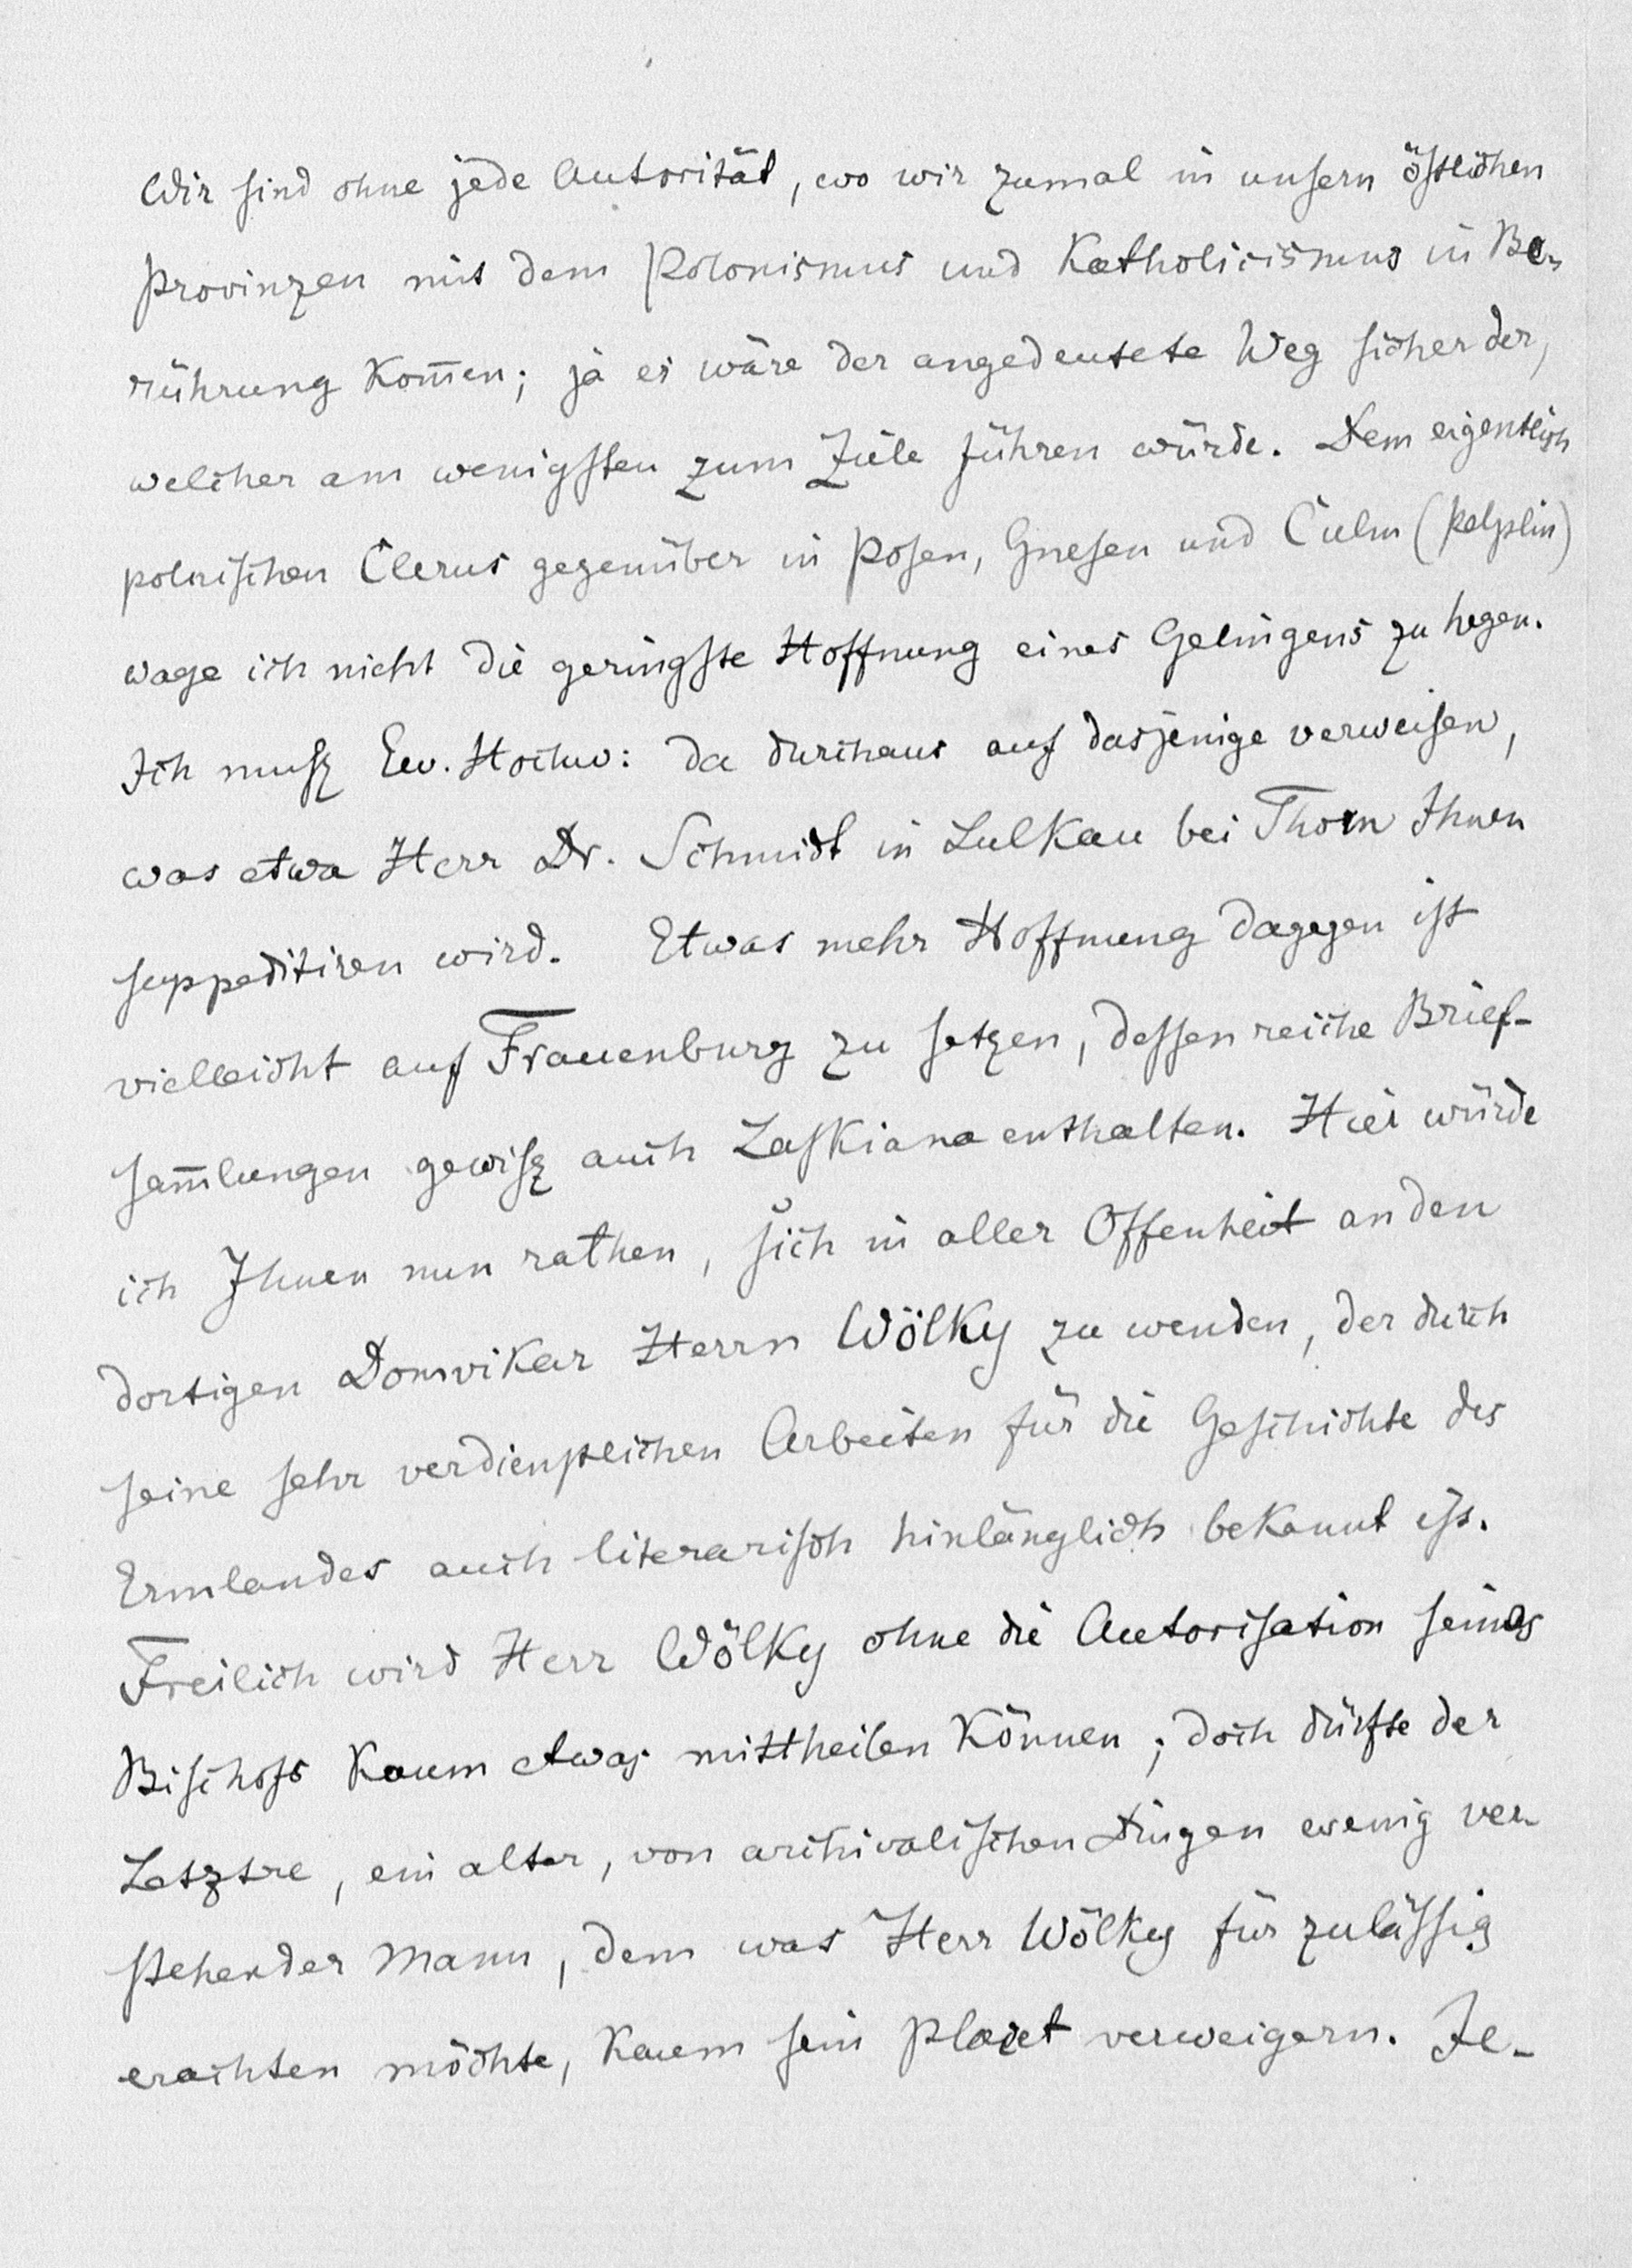 Wir sind ohne jede Autorität, wo wir zumal in unsern östlichen
Provinzen mit dem Polonismus und Katholicismus in Be-
rührung kom̅en; ja es wäre der angedeutete Weg sicher der,
welcher am wenigsten zum Ziele führen würde. Dem eigentlich
polnischen Clerus gegenüber in Posen, Gnesen und Culm (Pelplin)
wage ich nicht die geringste Hoffnung eines Gelingens zu hegen.
Ich muß Ew. Hochw: da durchaus auf dasjenige verweisen,
was etwa Herr Dr. Schmidt in Lulkau bei Thorn Ihnen
suppeditiren wird. Etwas mehr Hoffnung dagegen ist
vielleicht auf Frauenburg zu setzen, dessen reiche Brief-
sam̅lungen gewiß auch Laskiana enthalten. Hier würde
ich Ihnen nun rathen, sich in aller Offenheit an den
dortigen Domvikar Herrn Wölky zu wenden, der durch
seine sehr verdienstlichen Arbeiten für die Geschichte des
Ermlandes auch literarisch hinlänglich bekannt ist.
Freilich wird Herr Wölky ohne die Autorisation seines
Bischofs kaum etwas mittheilen können; doch dürfte der
Letztre, ein alter, von archivalischen Dingen wenig ver-
stehender Mann, dem was Herr Wölky für zulässig
erachten möchte, kaum sein placet verweigern. Je-